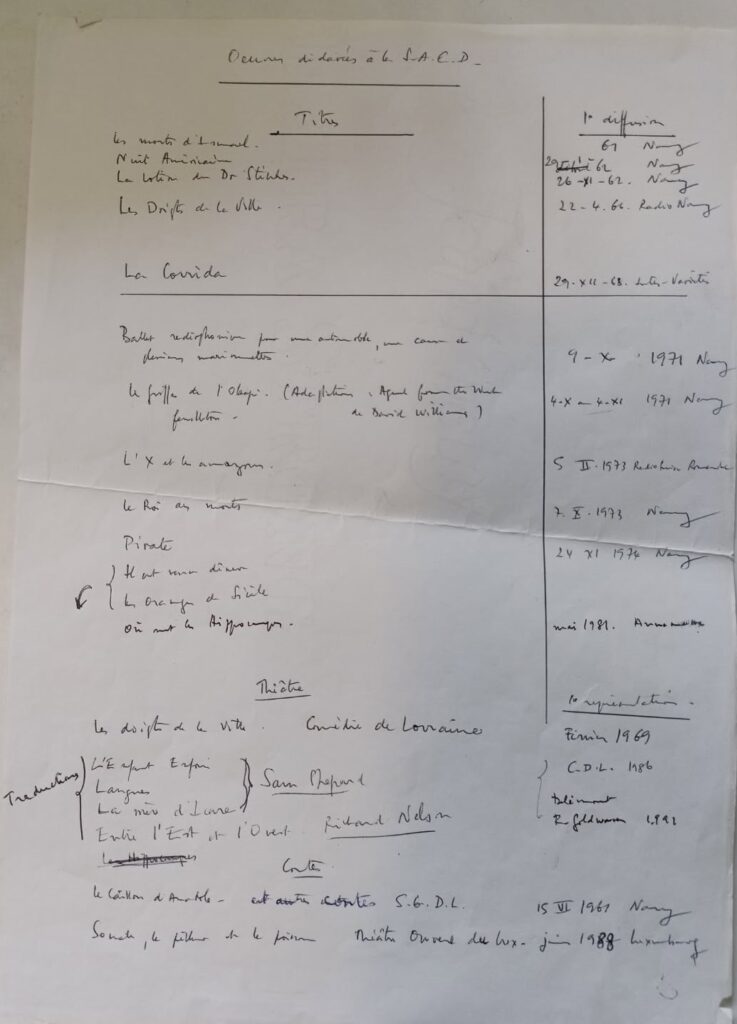 Oeuvres déclarées à la S.A.C.D.
Titres 1e diffusion
Les morts d'Ismael. 61 Nancy
Nuit Américaine 29 62 Nancy
La Lotion du Dr 26-XI-62. Nancy
Les Doigts de la Ville. 22-4.66. Radio Nancy
La Corrida 29-XII-68. Inter-Variétés
Ballet radiophonique pour une automobile, une canne et
plusieurs marionnettes. 9-X 1971 Nancy
La griffe de l'Okapi. (Adaptation: Agent from the West 4-X au 4-XI 1971 Nancy
feuilleton. de David Williams)
L'X et les amazones. 5 II.1973 Radio Suisse Romande
Le Roi des morts 7.X.1973 Nancy
Pirate 24 XI 1974 Nancy
Il est venu dîner
Les Oranges de Sicile
Où sont les Hippocampes. mai 1981.
Théâtre 1e représentation.
Les doigts de la ville. Comédie de Lorraine Février 1969
Traductions
L'Enfant Enfoui C.D.L. 1986
Langues Sam Shepard
La mère d'Icare Delémont
Entre l'Est et l'Ouest. Richard Nelson R. Goldwaser 1991
Contes
Le Caillou d'Anatole - et autres contes S.G.D.L. 15 VI 1961 Nancy
le pêcheur et le poisson Théâtre Ouvert de Lux. juin 1988 Luxembourg